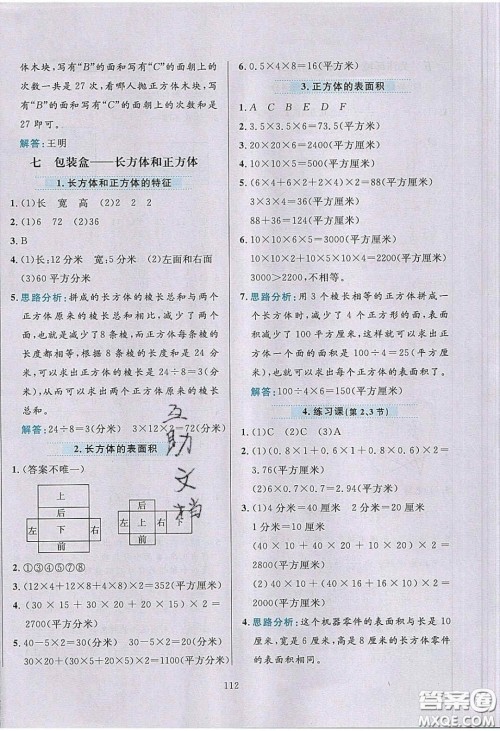 体木块，写有“B”的面和写有“C”的面朝上的
次数一共是 27 次，看哪人抛正方体木块，写
有“B”的面和写有“C”的面朝上的次数和是
27 即可。
解答：王明
七 包装盒——长方体和正方体
1.长方体和正方体的特征
1. (1)长 宽 高 (2)2 2 2
2. (1)6 72 (2)36
3. B
4. (1)长：12 分米 宽：5 分米 (2)左面和右面
(3)60 平方分米
5. 思路分析：拼成的长方体的棱长总和与两个
正方体原来的棱长总和相比，减少了两个
面，也就是减少了 8 条棱，而正方体每条棱的
长度都相等。根据 8 条棱的长度是 24 分
米，可以求出正方体的棱长是 24÷8=3(分
米)，从而求出两个正方体原来的棱长
总和。
解答：24÷8=3(分米) 3×12×2=72(分米)
2.长方体的表面积
1. (答案不唯一)
上
后
左 下 右
前
后
左 下 右 上
前
2. ①③④⑤⑦⑧
3. (12×4+12×8+4×8)×2=352(平方厘米)
4. (30×15+30×20+15×20)×2=
2700(平方分米)
5. 40-5×2=30(厘米) 30-5×2=20(厘米)
30×20+(30×5+20×5)×2=1100(平方厘米)
6. 0.5×4×8=16(平方米)
3.正方体的表面积
1. A C B E D F
2. 3.5×3.5×6=73.5(平方米)
3. 20×20×5=2000(平方厘米)
4. 10×10×6=600(平方厘米)
5. (6×4+6×2+4×2)×2=88(平方厘米)
3×3×4=36(平方厘米)
88+36=124(平方厘米)
6. 10×10×6×5=3000(平方厘米)
10×10×2+10×5×10×4=2200(平方厘米)
3000>2200，不相等。
7. 思路分析：用 3 个棱长相等的正方体拼成一
个长方体，减少了 4 个正方形的面，表面积
减少了 100 平方厘米，这样就可以求出正方
体一个面的面积是 100÷4=25(平方厘米)，
也就可以求出每个正方体的表面积了。
解答：100÷4×6=150(平方厘米)
4. 练习课(第 2、3 节)
1. (1)C (2)C (3)A
2. (1)(0.8×0.6+0.8×1+0.6×1)×2=
3.76(平方米)
(2)0.7×0.7×6=2.94(平方米)
3. (1)4 分米=40 厘米 2 分米=20 厘米
1 分米=10 厘米
(40×10+40×20+10×20)×2=2800
(平方厘米)
(2)(40×20+40×16+20×16)×2=
3520(平方厘米)
4. 思路分析：这个机器零件的表面积与长是 10
厘米、宽是 8 厘米、高是 8 厘米的长方体零件
的表面积相同。
互
助
文
档
112
答案圈
MXQE.COM